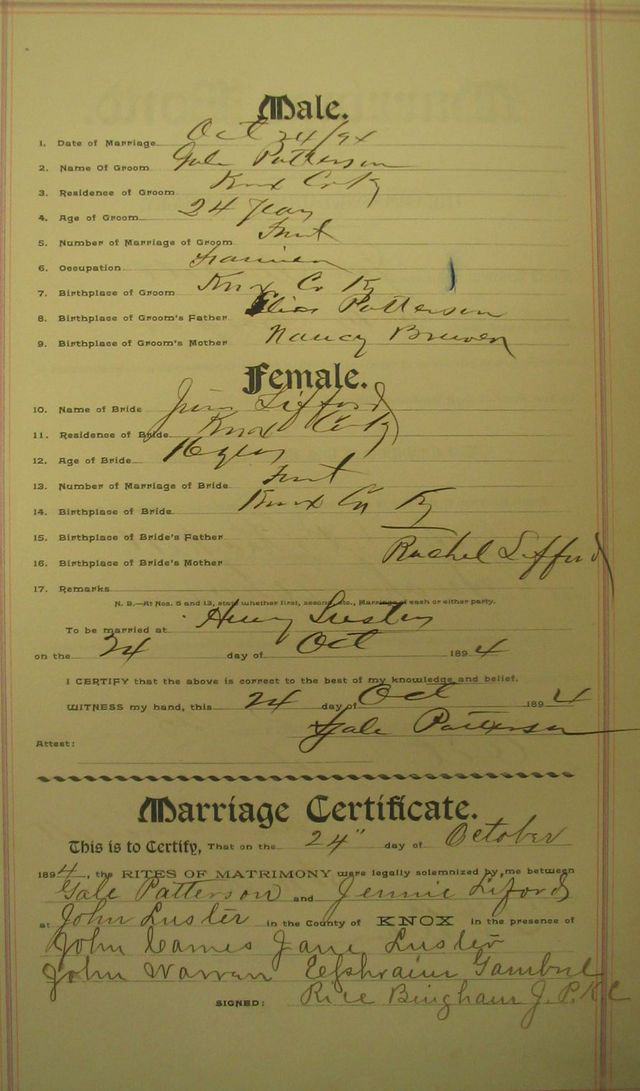 Male.
1. Date of Marriage Oct 24/94
2. Name Of Groom Gale Patterson
3 Residence of Groom Knox Co Ky
4. Age of Groom 24 years
5. Number of Marriage of Groom First
6. Occupation
7. Birthplace of Groom Knox Co Ky
8 Birthplace of Groom's Father Patterson
9. Birthplace of Groom's Mother Nancy
Female.
10. Name of Bride Lifford
11. Residence of Bride Knox Co Ky
12. Age of Bride 16 years
13. Number of Marriage of Bride First
14. Birthplace of Bride Knox Co Ky
15. Birthplace of Bride's Father
16. Birthplace of Bride's Mother Rachel Lifford
17. Remarks
N. B.—At Nos. 5 and 13, state whether first, second, etc., Marriage of each or either party.
To be married at Henry Lusters
on the 24 day of Oct 1894
I CERTIFY that the above is correct to the best of my knowledge and belief.
WITNESS my hand, this 24 day of Oct 1894
Gale Patterson
Attest:
Marriage Certificate.
This is to Certify, That on the 24" day of October
1894, the RITES OF MATRIMONY were legally solemnized by me between
Gale Patterson and Jennie Liford
at John Luster in the County of KNOX in the presence of
John Jane Luster
John Warran
SIGNED: Rice Bingham J. P. K C